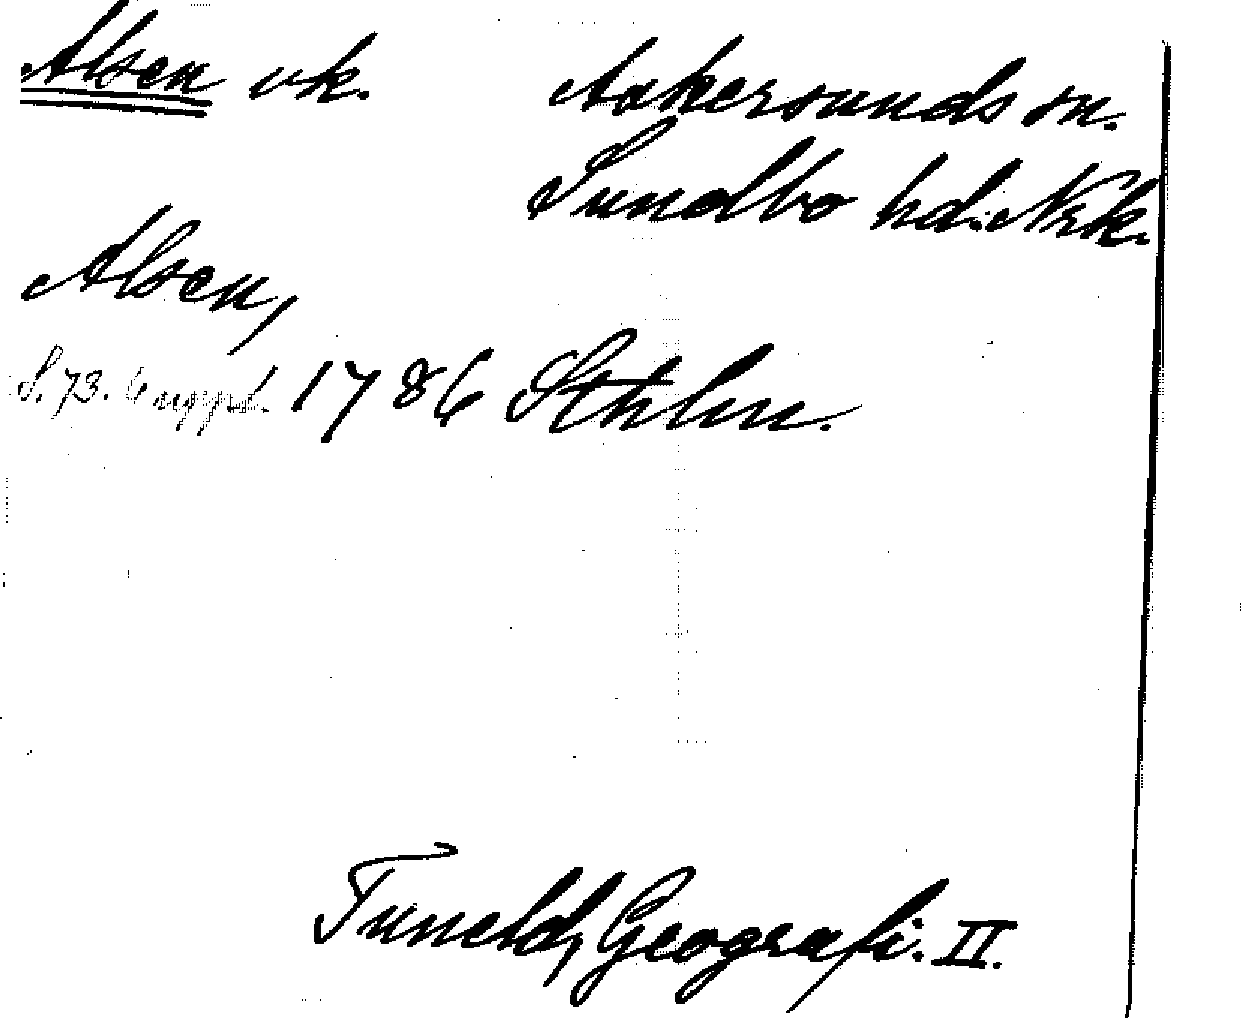 Alsen vk. Askersunds sn.
Sundbo hd. Nrk.
Alsen,
S. 73. 6 uppl. 1786 Sthlm.
Tuneld, Geografi. II.